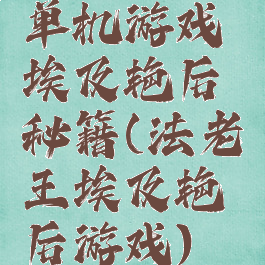 单机游戏
埃及艳后
秘籍(法老
王埃及艳
后游戏)